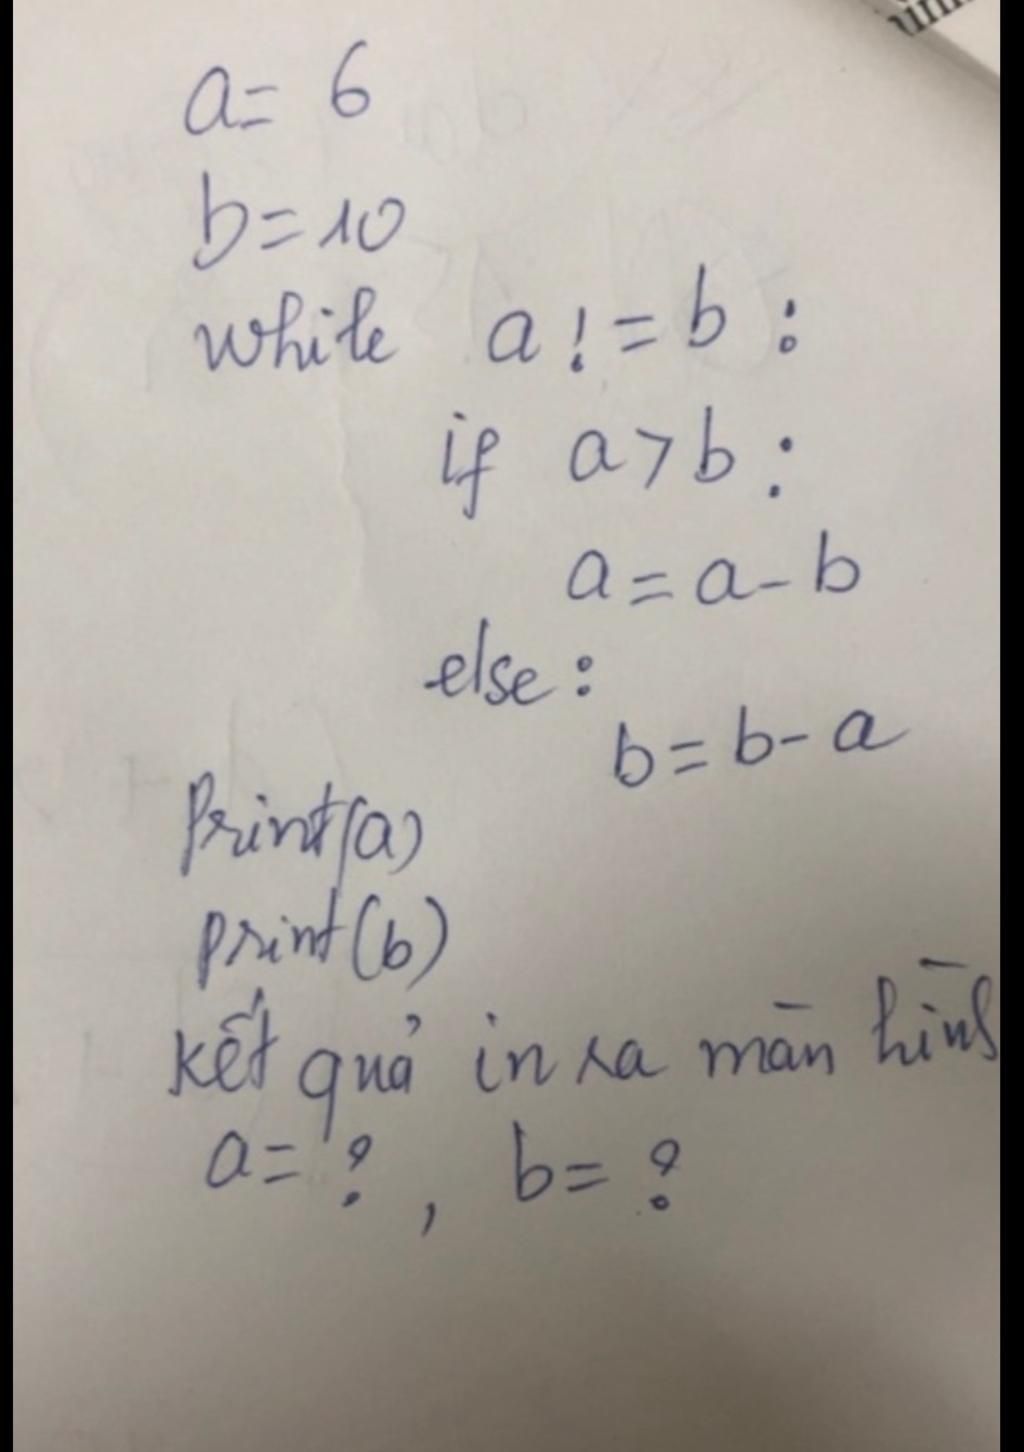 a = 6
b = 10
while a != b :
if a > b :
a = a - b
else :
b = b - a
Print(a)
print(b)
Kết quả in ra màn hình
a = ? , b = ?